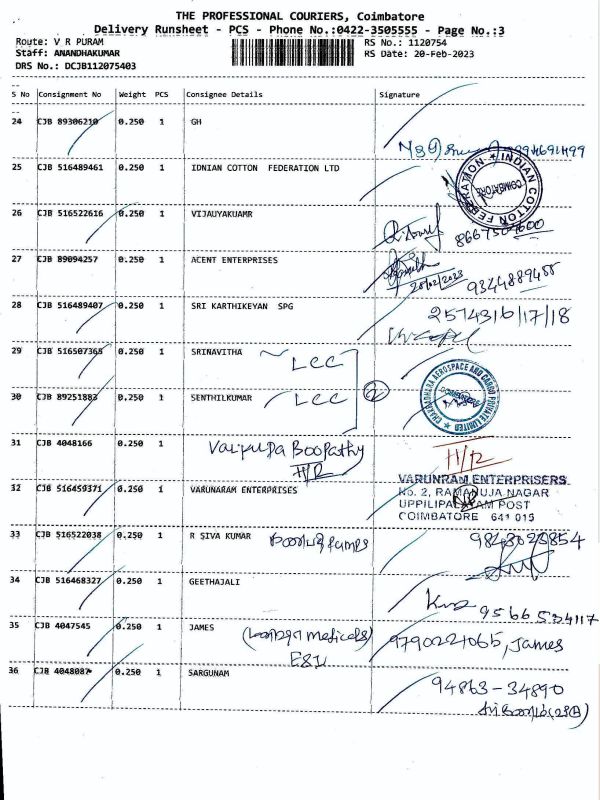 THE PROFESSIONAL COURIERS, Coimbatore
Delivery Runsheet - PCS - Phone No.:0422-3505555 - Page No.:3
Route: V R PURAM
RS No.: 1120754
Staff: ANANDHAKUMAR
RS Date: 20-Feb-2023
DRS No.: DCJB112075403
S No Consignment No Weight PCS Consignee Details Signature
24 CJB 89306210 0.250 1 GH
25 CJB 516489461 0.250 1 IDNIAN COTTON FEDERATION LTD
INDIAN COTTON FEDERATION
COIMBATORE
26 CJB 516522616 0.250 1 VIJAUYAKUAMR
27 CJB 89094257 0.250 1 ACENT ENTERPRISES
20/02/2023 9344889455
28 CJB 516489407 0.250 1 SRI KARTHIKEYAN SPG 2574316/17/18
29 CJB 516507365 0.250 1 SRINAVITHA LCC
30 CJB 89251883 0.250 1 SENTHILKUMAR LCC 2
CHAKRADHARA AEROSPACE AND CARGO PRIVATE LIMITED
31 CJB 4048166 0.250 1 Boopathy H/R
H/R
32 CJB 516459371 0.250 1 VARUNARAM ENTERPRISES
VARUNRAM ENTERPRISERS
No. 2, RAMANUJA NAGAR
UPPILIPALAYAM POST
COIMBATORE 641 015
33 CJB 516522038 0.250 1 R SIVA KUMAR
34 CJB 516468327 0.250 1 GEETHAJALI
35 CJB 4047545 0.250 1 JAMES medicals) 9790221065, James
ESI
36 CJB 4048087 0.250 1 SARGUNAM 94863-34890